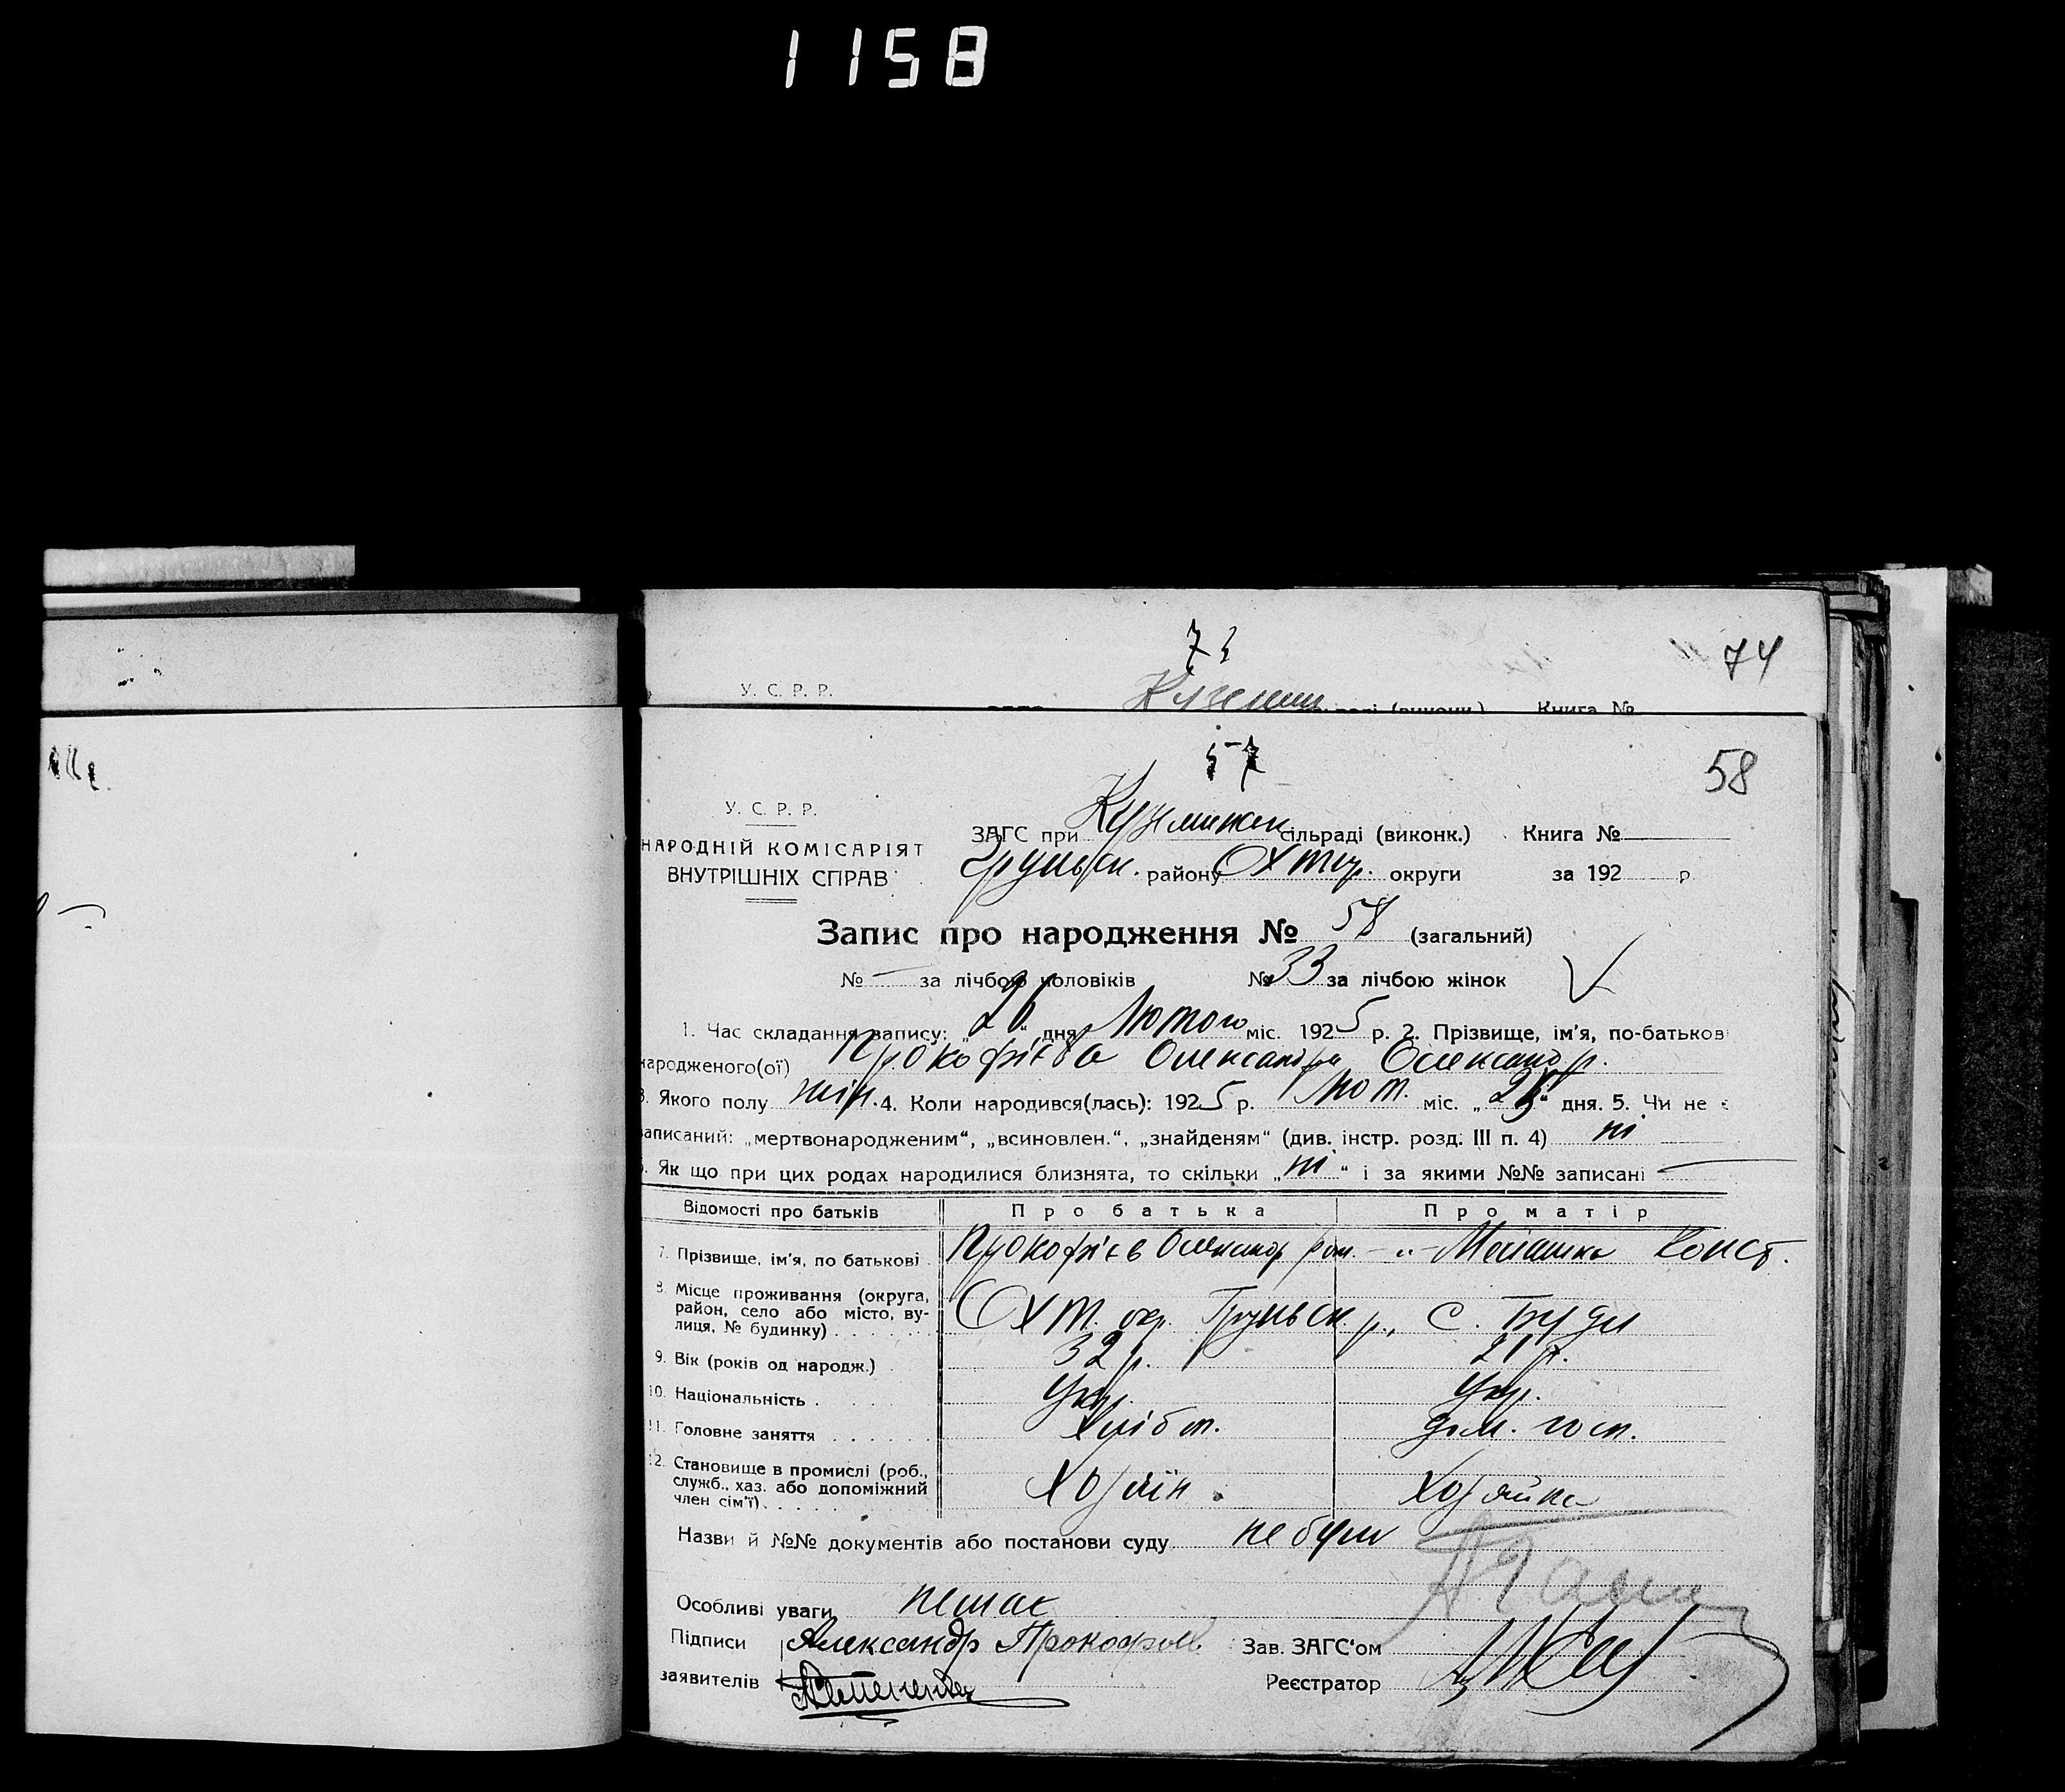 1158
73
74
У. С. Р. Р.
(виконк.) Книга №
57
58
У. С. Р. Р.
НАРОДНІЙ КОМІСАРІЯТ
ВНУТРІШНІХ СПРАВ
ЗАГС при сільраді (виконк.) Книга №
Груньск. району Охтир. округи за 192 р
Запис про народження № 58 (загальний)
№ — за лічбою чоловіків № 33 за лічбою жінок
1. Час складання запису: „26“ дня Лютого міс. 1925 р. 2. Прізвище, ім'я, по-батьков
народженого(ої) Прокофієва Олександра Олександр.
3. Якого полу жін. 4. Коли народився(лась): 1925 р. Лют. міс. „ “ дня. 5. Чи не є
записаний: „мертвонародженим“, „всиновлен.“, „знайденям“ (див. інстр. розд. III п. 4) ні
6. Як що при цих родах народилися близнята, то скільки „ні“ і за якими №№ записані —
Відомості про батьків Про батька Про матір
7. Прізвище, ім'я, по батькові Прокофієв Олександр Ром. —„— Мелашка Конст.
8. Місце проживання (округа,
район, село або місто, ву-
лиця, № будинку) Охт. окр. Груньск. р., с. Буди
9. Вік (років од народж.) 32 р. 21 р.
10. Національність Укр. Укр.
11. Головне заняття Хлібт. дом. госп.
12. Становище в промислі (роб.,
служб., хаз. або допоміжний
член сім'ї) Хозяїн Хозяйка
Назви й №№ документів або постанови суду не були
Особливі уваги немає
Підписи Александр Прокофьев Зав. ЗАГС'ом
заявителів Реєстратор